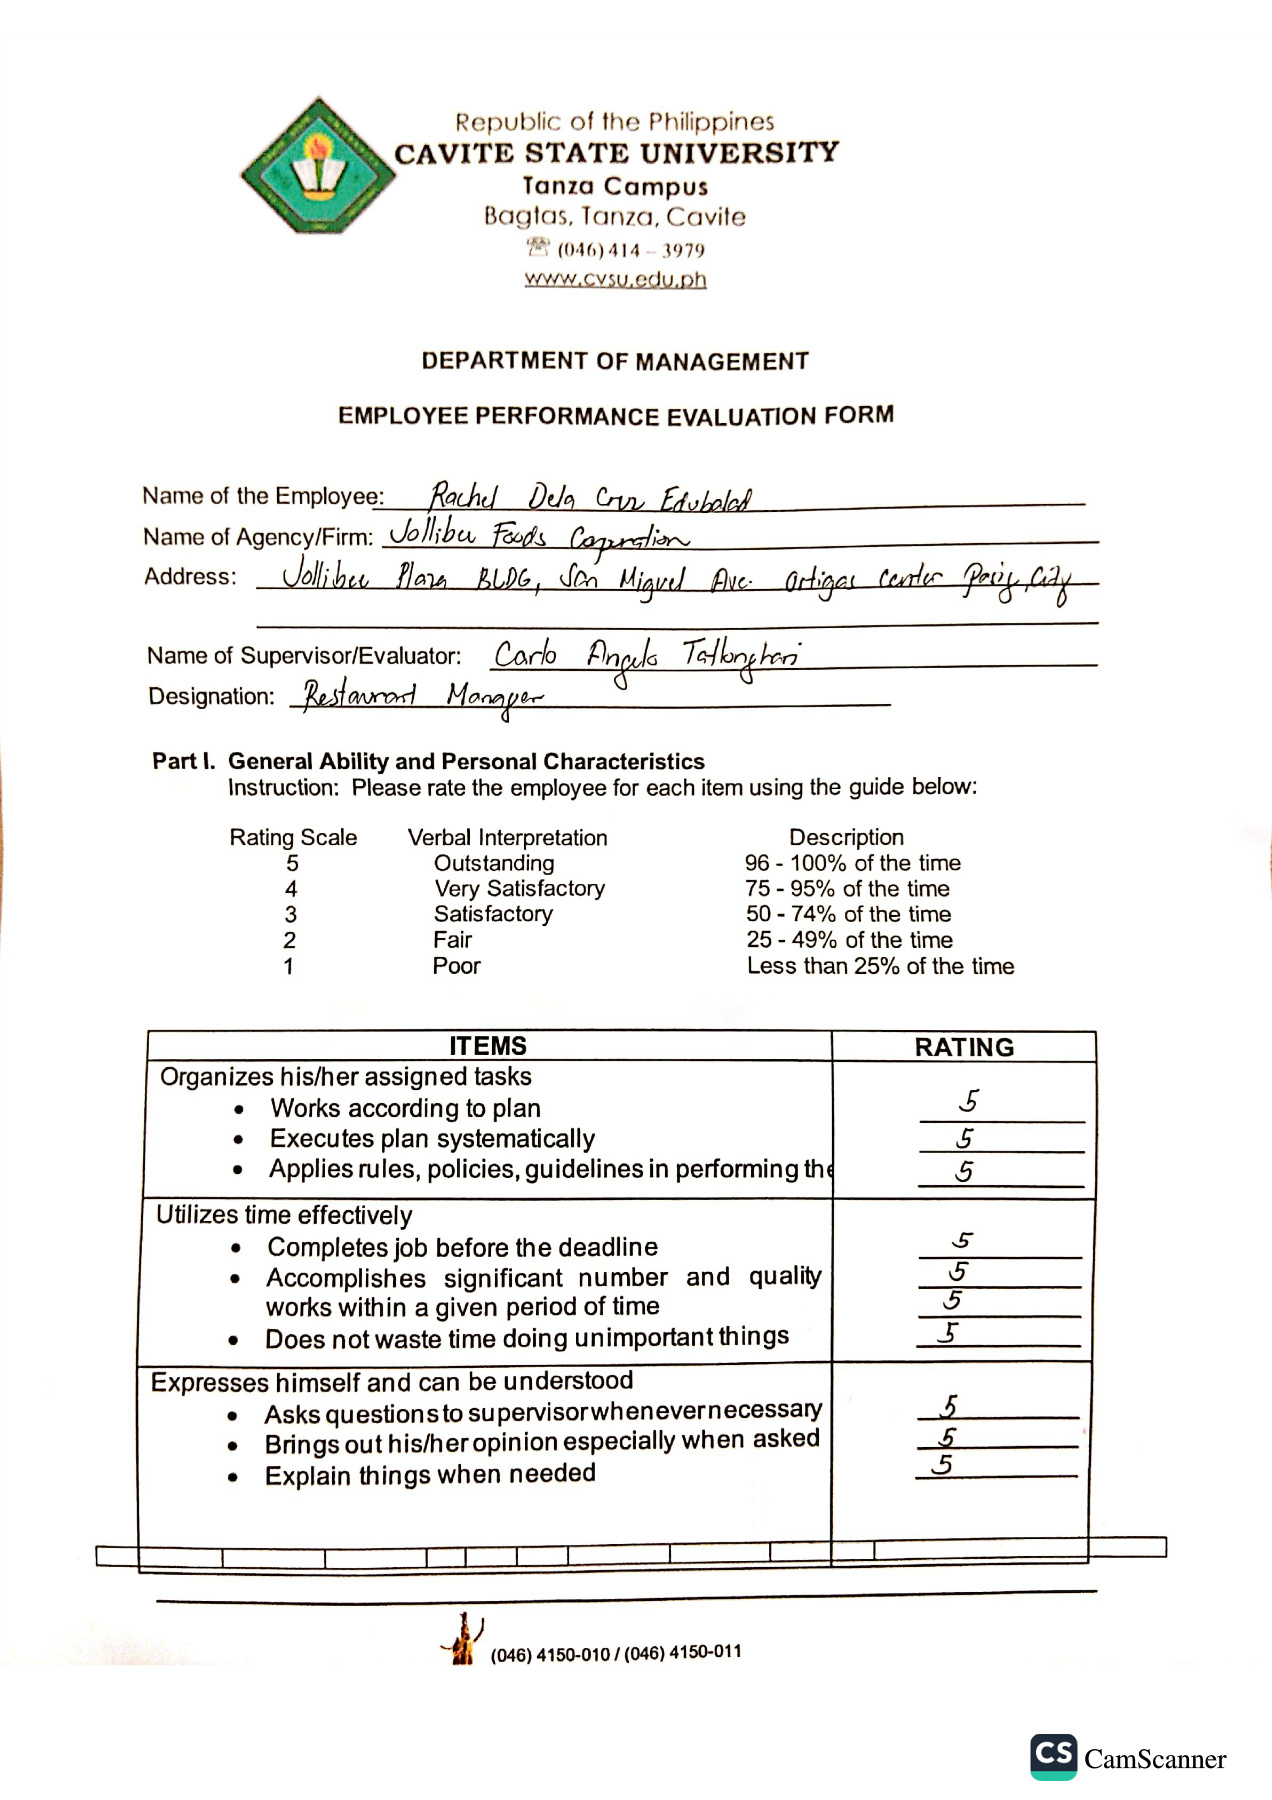 Republic of the Philippines
CAVITE STATE UNIVERSITY
Tanza Campus
Bagtas, Tanza, Cavite
☏ (046) 414 – 3979
www.cvsu.edu.ph
DEPARTMENT OF MANAGEMENT
EMPLOYEE PERFORMANCE EVALUATION FORM
Name of the Employee: Rachel Dela Cruz Edubalad
Name of Agency/Firm: Jollibee Foods Coporation
Address: Jollibee Plaza BLDG, San Miguel Ave. Ortigas Center Pasig City
Name of Supervisor/Evaluator: Carlo Angelo Tatlonghari
Designation: Restaurant Manager
Part I. General Ability and Personal Characteristics
Instruction: Please rate the employee for each item using the guide below:
Rating Scale Verbal Interpretation Description
5 Outstanding 96 - 100% of the time
4 Very Satisfactory 75 - 95% of the time
3 Satisfactory 50 - 74% of the time
2 Fair 25 - 49% of the time
1 Poor Less than 25% of the time
ITEMS RATING
Organizes his/her assigned tasks
• Works according to plan 5
• Executes plan systematically 5
• Applies rules, policies, guidelines in performing the 5
Utilizes time effectively
• Completes job before the deadline 5
• Accomplishes significant number and quality 5
works within a given period of time 5
• Does not waste time doing unimportant things 5
Expresses himself and can be understood
• Asks questions to supervisor whenever necessary 5
• Brings out his/her opinion especially when asked 5
• Explain things when needed 5
(046) 4150-010 / (046) 4150-011
CS CamScanner